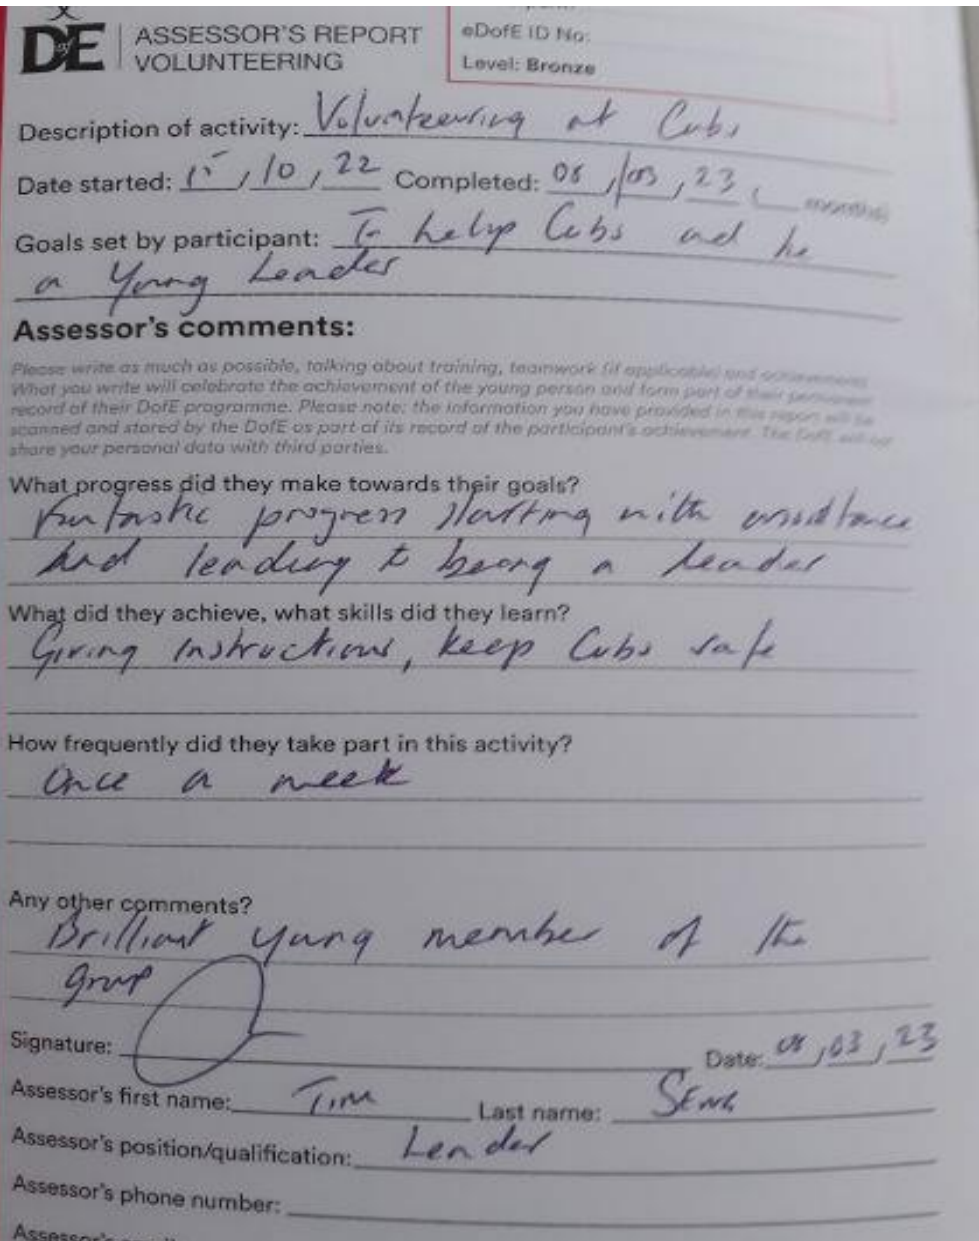 DofE ASSESSOR'S REPORT
VOLUNTEERING
eDofE ID No:
Level: Bronze
Description of activity: Volunteering at Cubs
Date started: 15/10/22 Completed: 08/03/23 ( months)
Goals set by participant: To help Cubs and be
a Young Leader
Assessor's comments:
Please write as much as possible, talking about training, teamwork (if applicable) and achievements.
What you write will celebrate the achievement of the young person and form part of their permanent
record of their DofE programme. Please note: the information you have provided in this report will be
scanned and stored by the DofE as part of its record of the participant's achievement. The DofE will not
share your personal data with third parties.
What progress did they make towards their goals?
Fantastic progress starting with assistance
and leading to being a leader
What did they achieve, what skills did they learn?
Giving instructions, keep Cubs safe
How frequently did they take part in this activity?
Once a week
Any other comments?
Brilliant young member of the
group
Signature:
Date: 08/03/23
Assessor's first name: Tim Last name:
Assessor's position/qualification: Leader
Assessor's phone number: